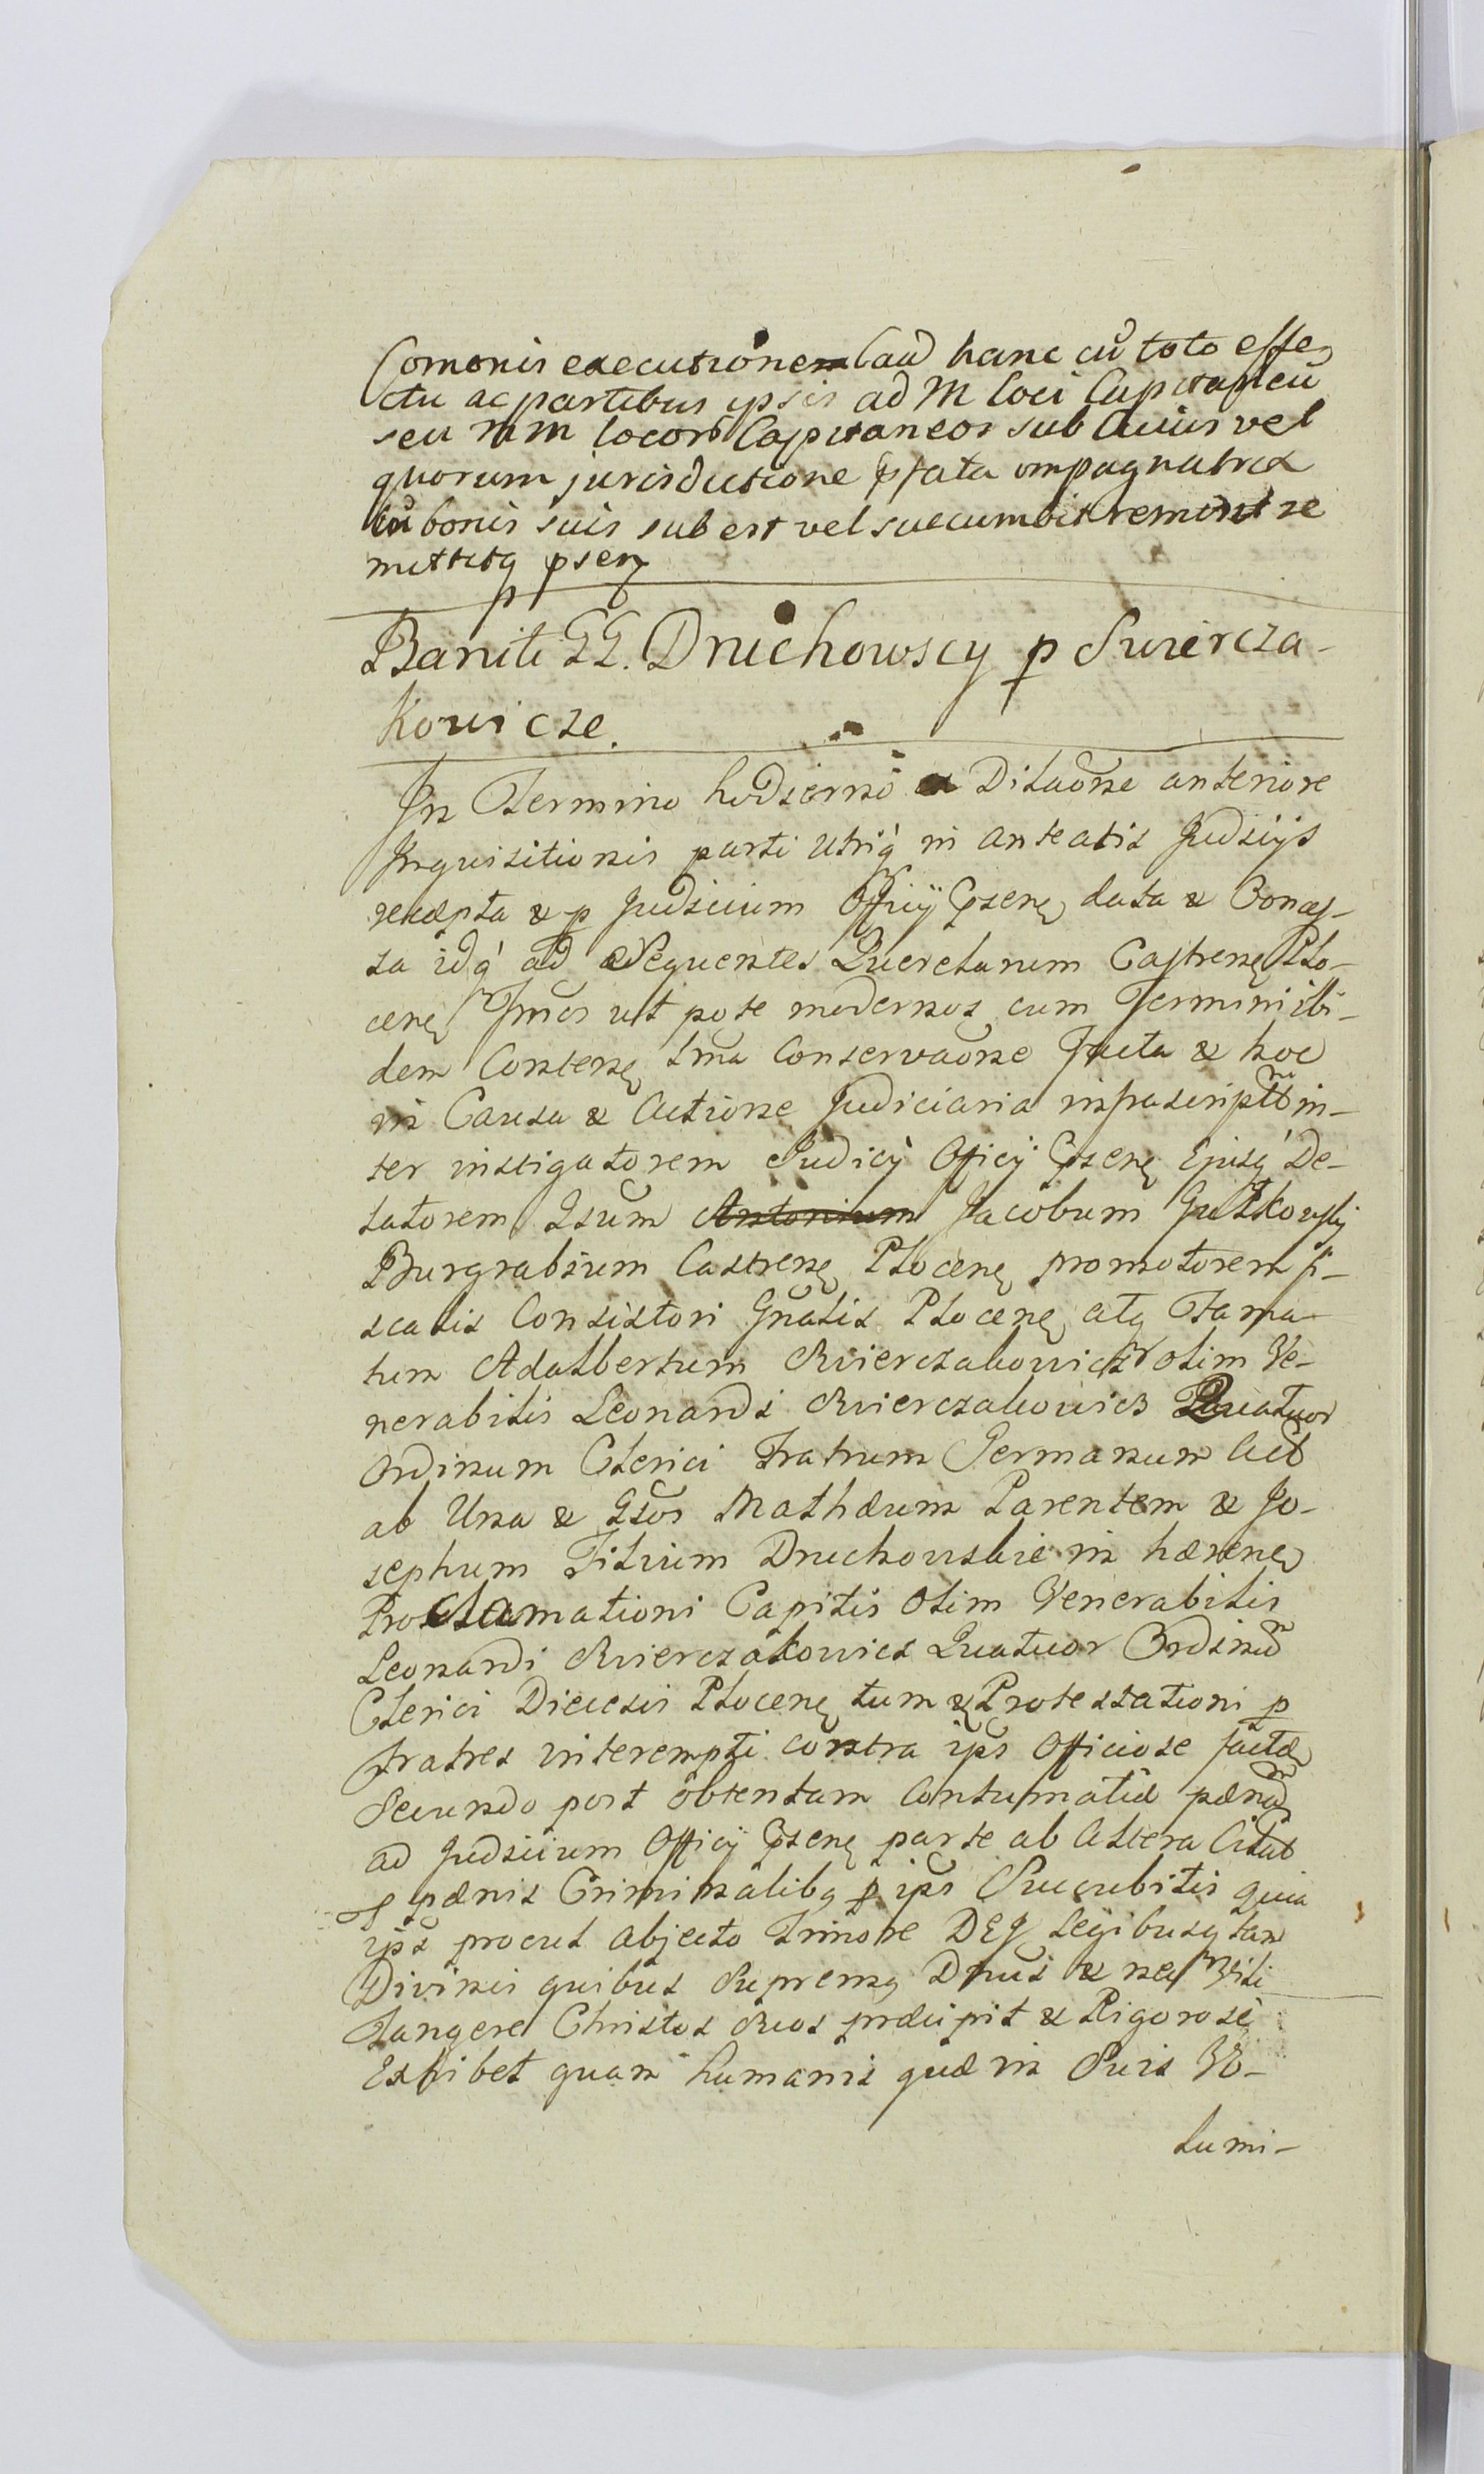 Comonis executionem Caũ hanc cũ toto effe
ctu ac partibus ipsis ad M loci Capitaneũ
seu MM locorũ Capitaneos sub Cuius vel
quorum jurisdictione pfata impugnatrix
cũ bonis suis subest vel succumbit remisit re
mittitq psenę
Baniti GG. Druchowscy p Swiercza-
kowicze.
In Termino hodierno ex Dilaõne anteriore
Inquisitionis parti utriq́ in anteatis Judicijs
recepta & p Judicium Officÿ Cpsenę data &
sa idq́ ad Sequentes Querelarum Castrenę Plo-
cenę Tmos ut pote modernos cum Termini ibi-
dem Contenę Conservaõne facta & hoc
in Causa & Actione Judiciaria infrascriptũ in-
ter instigatorem Judicÿ Officÿ Cpsenę Ejusq́ De-
latorem Gsum Antonium Jacobum Gutkowski
Burgrabium Castrenę Plocenę promotorem fi-
scalis Consistori Gnalis Plocenę atq Fama-
tum Adalbertum Swierczakowicz olim Ve-
nerabilis Leonardi Swierczakowicz Quatuor
Ordinum Clerici Fratrum Germanum Act
ab Una & Gsos Mathæum Parentem & Jo-
sephum Filium Druchowskie in hærenę
Proclamationi Capitis olim Venerabilis
Leonardi Swierczakowicz Quatuor Ordinũ
Clerici Diecesis Plocenę tum & Protestationi p
fratres interempti contra ips Officiose factæ
Secundo post obtentam Contumatiæ pænã
ad Judicium Officÿ Cpsenę parte ab Altera Citat
pænis Criminalibq p ips Succubitis quia
ips procul abjecto Timore DEI legibusq tam
Divinis quibus Supremq Dnus &
Tangere Christos Suos præcipit & Rigorose
Exhibet quam humanis quæ in Suis Vo-
lumi-